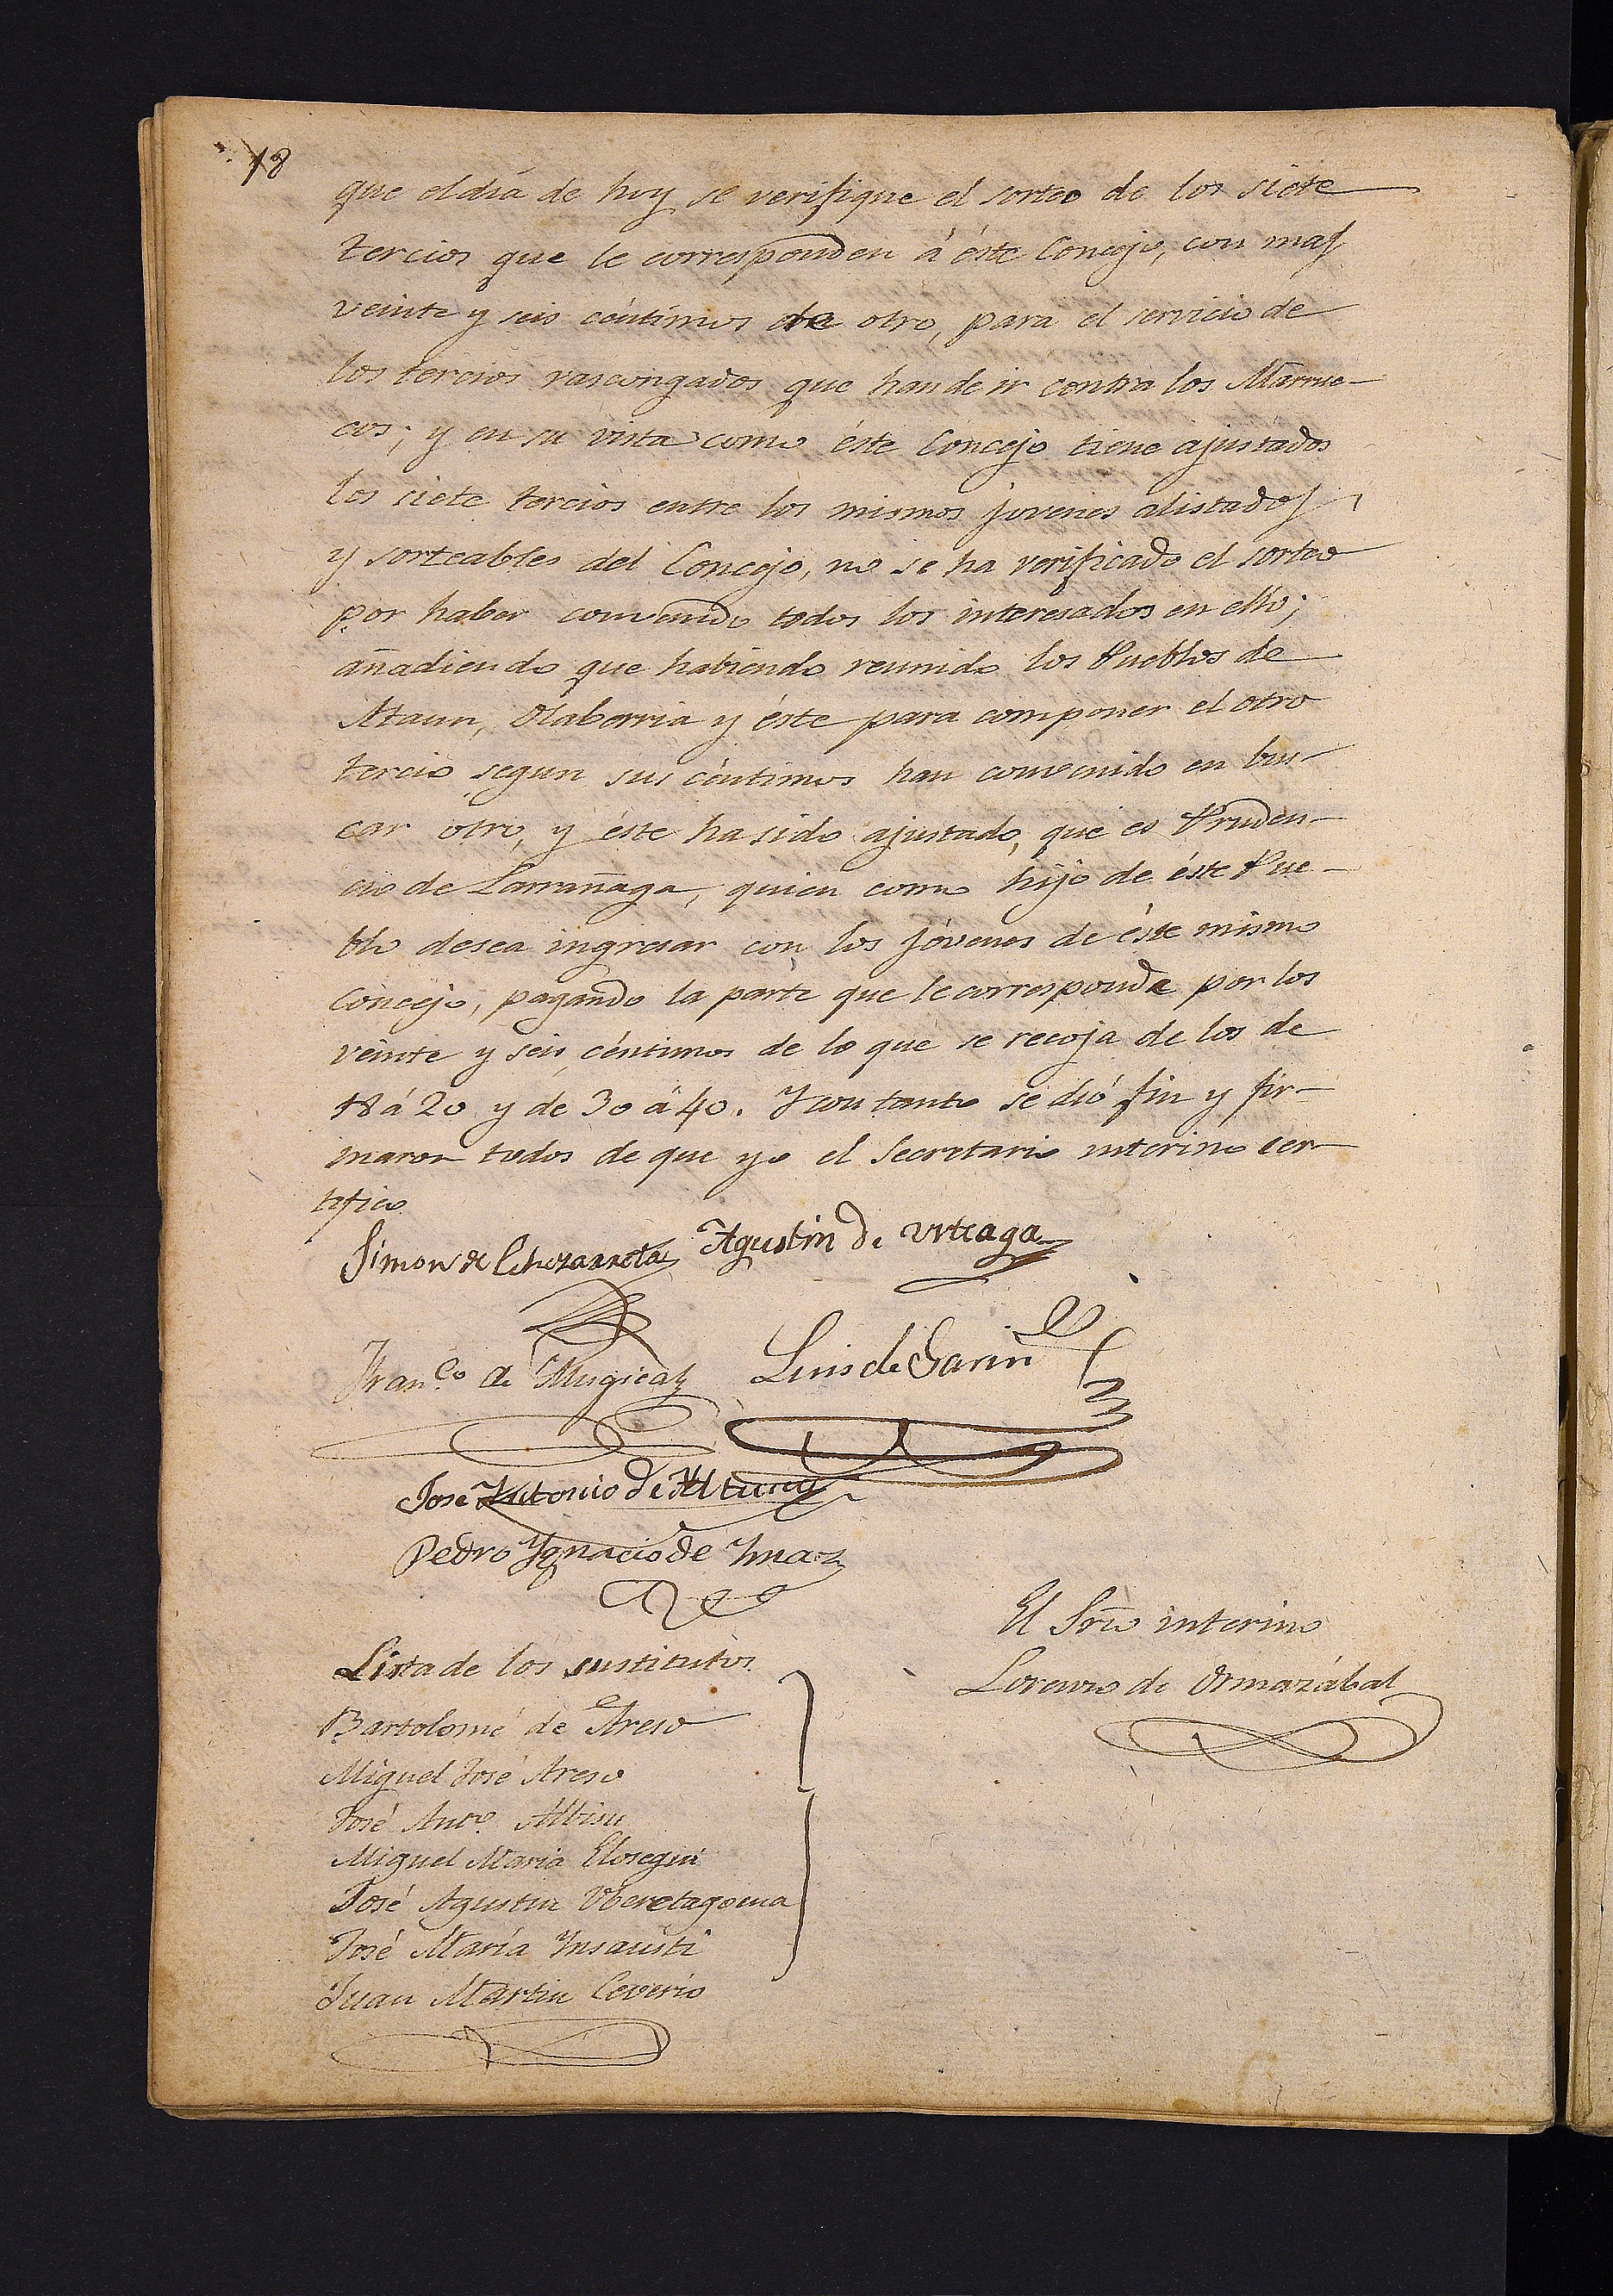 18
que el dia de hoy se verifique el sorteo de los siete
tercios que le corresponden á éste Concejo, con mas
veinte y seis céntimos de otro, para el servicio de
los tercios vascongados que han de ir contra los Marrue-
cos; y en su vista como éste Concejo tiene ajustados
los siete tercios entre los mismos jovenes alistados
y sorteables del Concejo, no se ha verificado el sorteo
por haber convenido todos los interesados en ello;
añadiendo que habiendo reunido los Pueblos de
Ataun, Olaberria y éste para componer el otro
tercio segun sus céntimos han convenido en bus-
car otro, y éste ha sido ajustado, que es Pruden-
cio de Larrañaga, quien como hijo de éste Pue-
blo desea ingresar con los jóvenes de éste mismo
Concejo, pagando la parte que le corresponda por los
veinte y seis céntimos de lo que se recoja de los de
18 á 20 y de 30 á 40. Y con tanto se dió fin y fir-
maron todos de que yo el Secretario interino cer-
tifico
Simon de Echezarreta Agustin de Urteaga
Franco de Mugica Luis de Garin
Jose Antonio de Altuna
Pedro Ygnacio de Ymaz
El Srio interino
Lorenzo de Ormazábal
Lista de los sustitutos
Bartolomé de Areso
Miguel José Areso
José Anto Albisu
Miguel Maria Elosegui
José Agustin Uberetagoena
José María Ynsausti
Juan Martin Ceverio